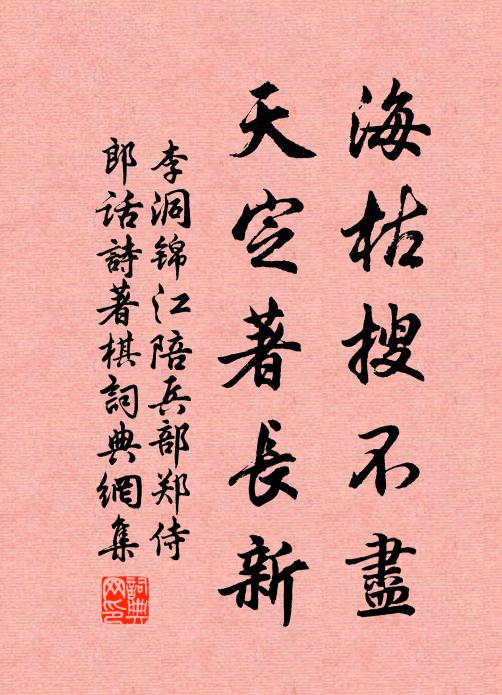 海枯搜不盡
天定著長新
李洞锦江陪兵部郑侍
郎话詩著棋詞典網集
詞典网印